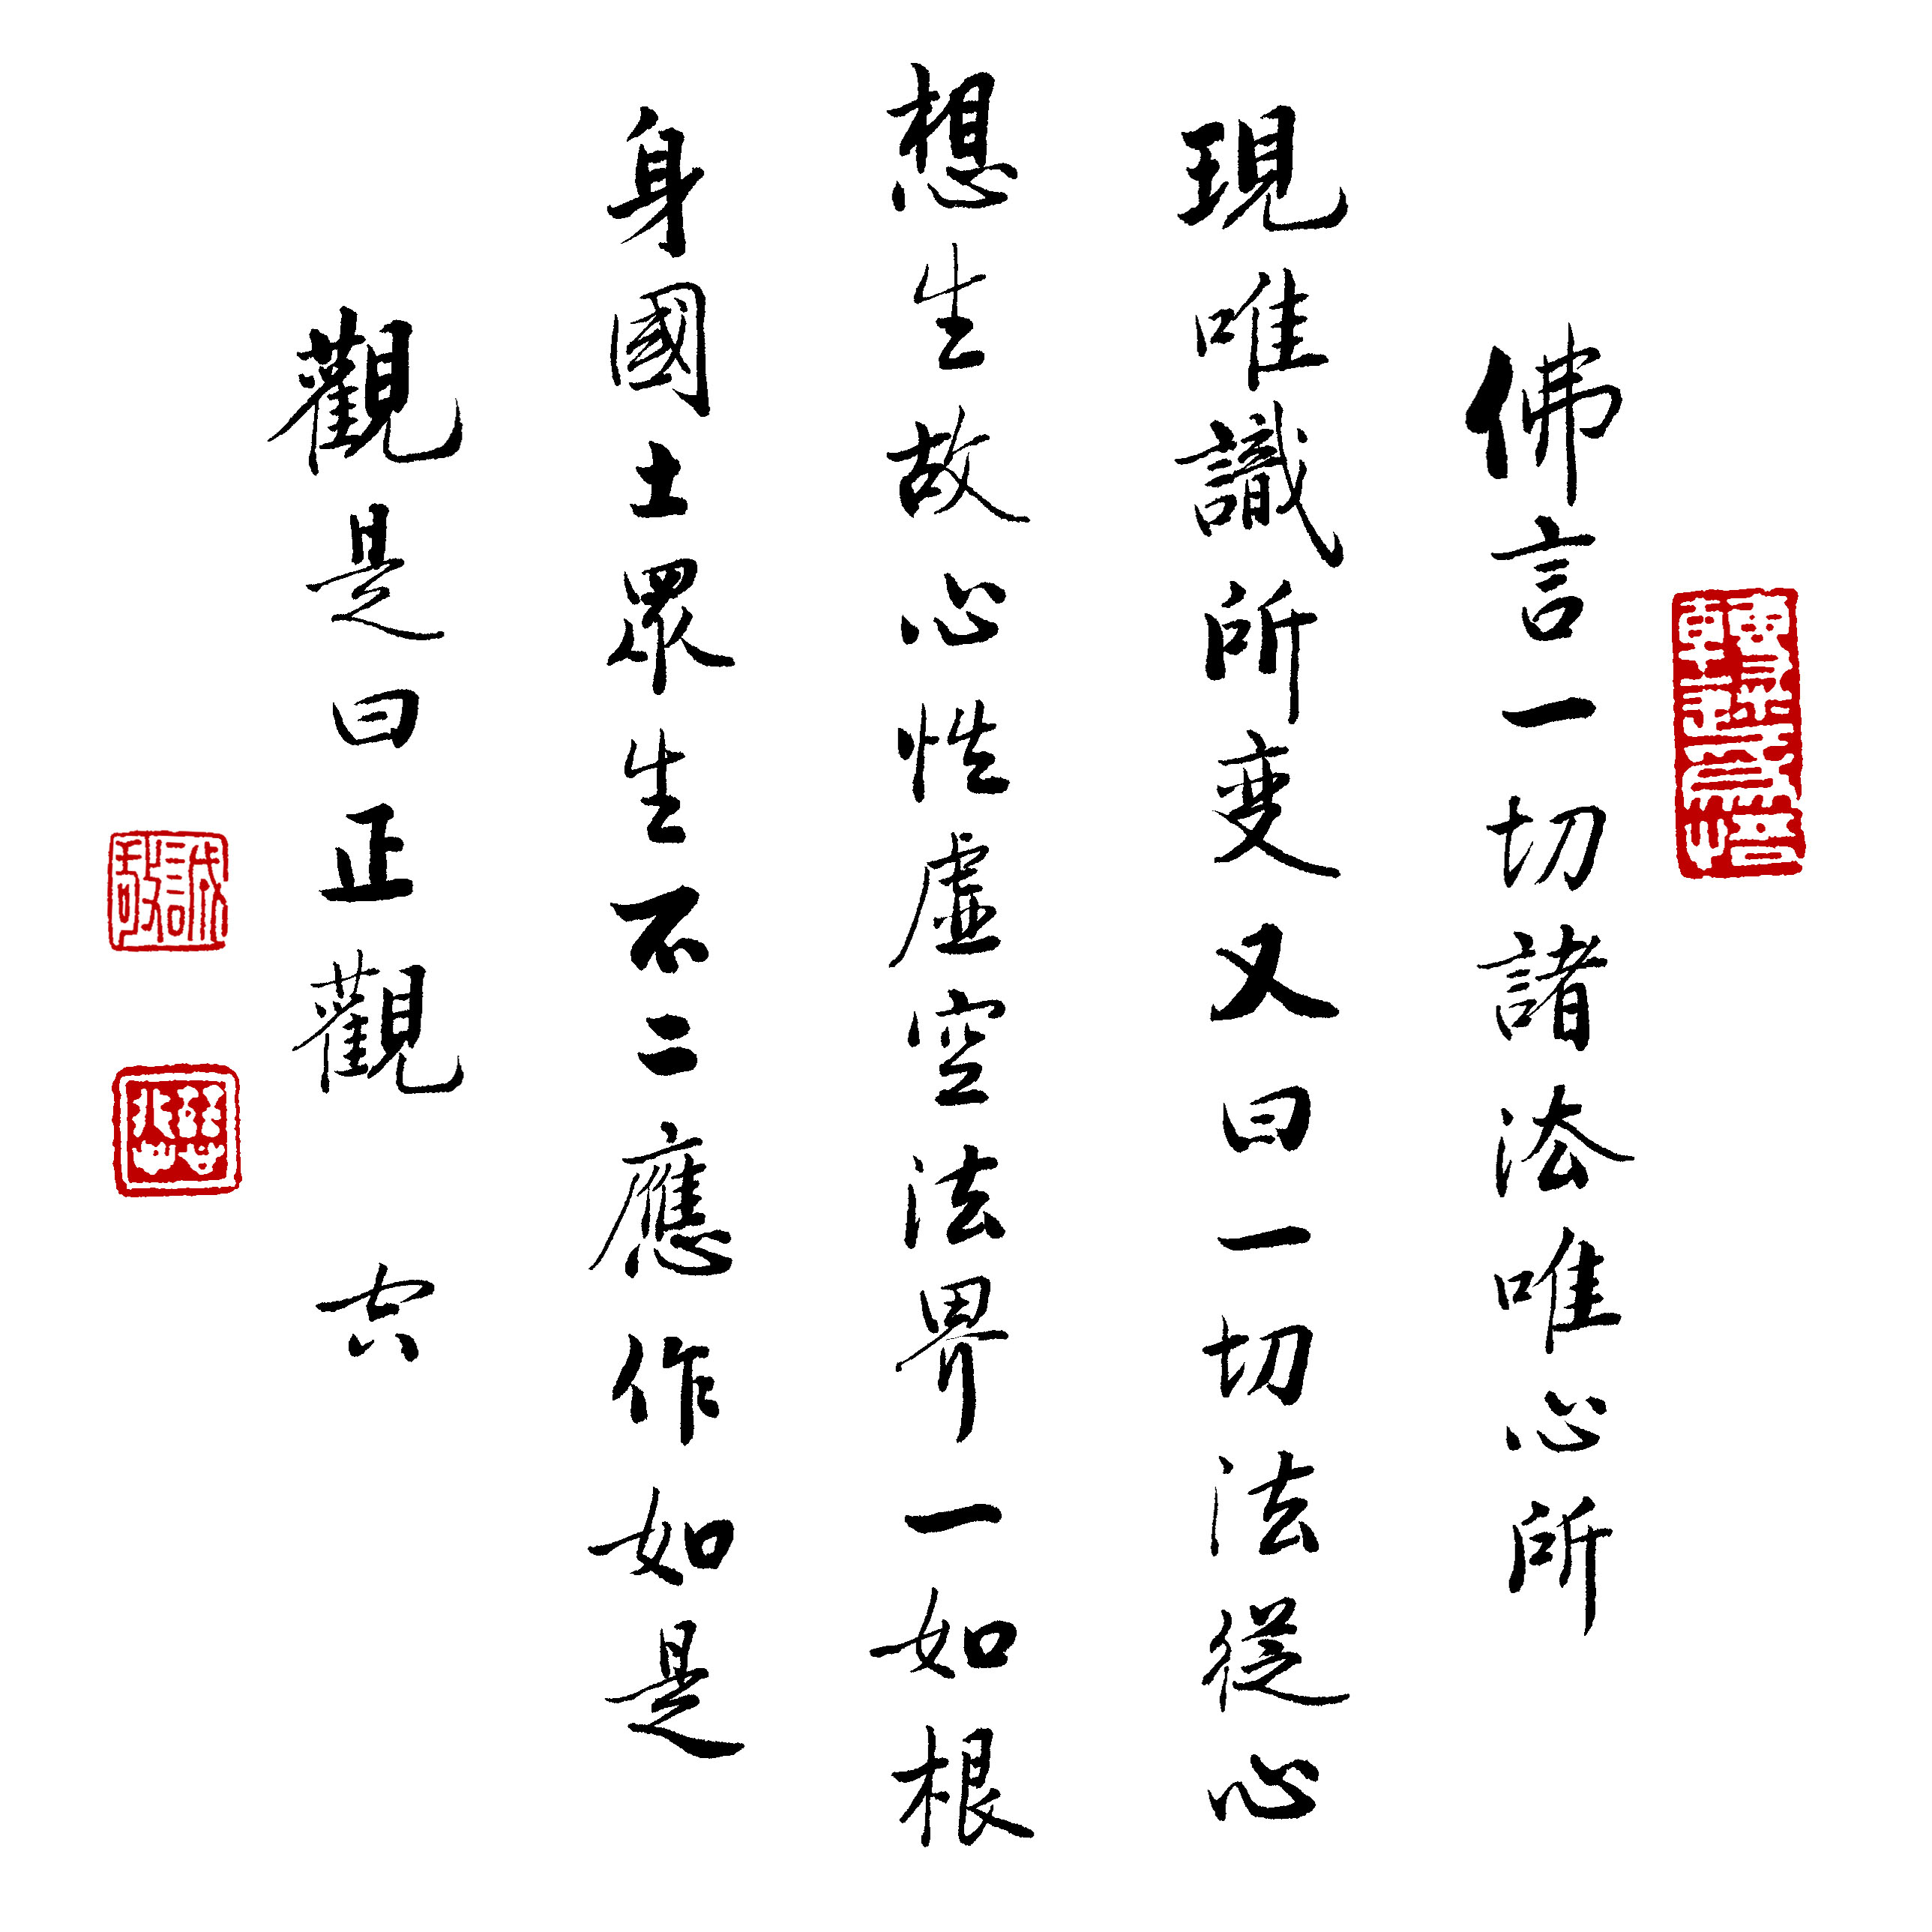 佛言一切諸法唯心所
現唯識所变又曰一切法從心
想生故心性虛空法界一如根
身國土眾生不二應作如是
觀是曰正觀 六
誠敬